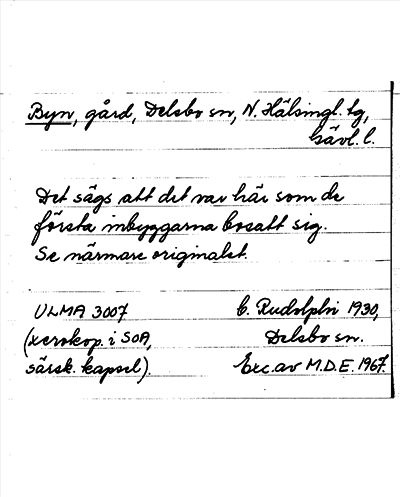 Byn, gård, Delsbo sn, N. Hälsingl. tg,
Gävl. l.
Det sägs att det var här som de
första inbyggarna bosatt sig.
Se närmare originalet.
ULMA 3007
(xerokop. i SOA,
särsk. kapsel).
C. Rudolphi 1930,
Delsbo sn.
Exc. av M.D.E. 1967.